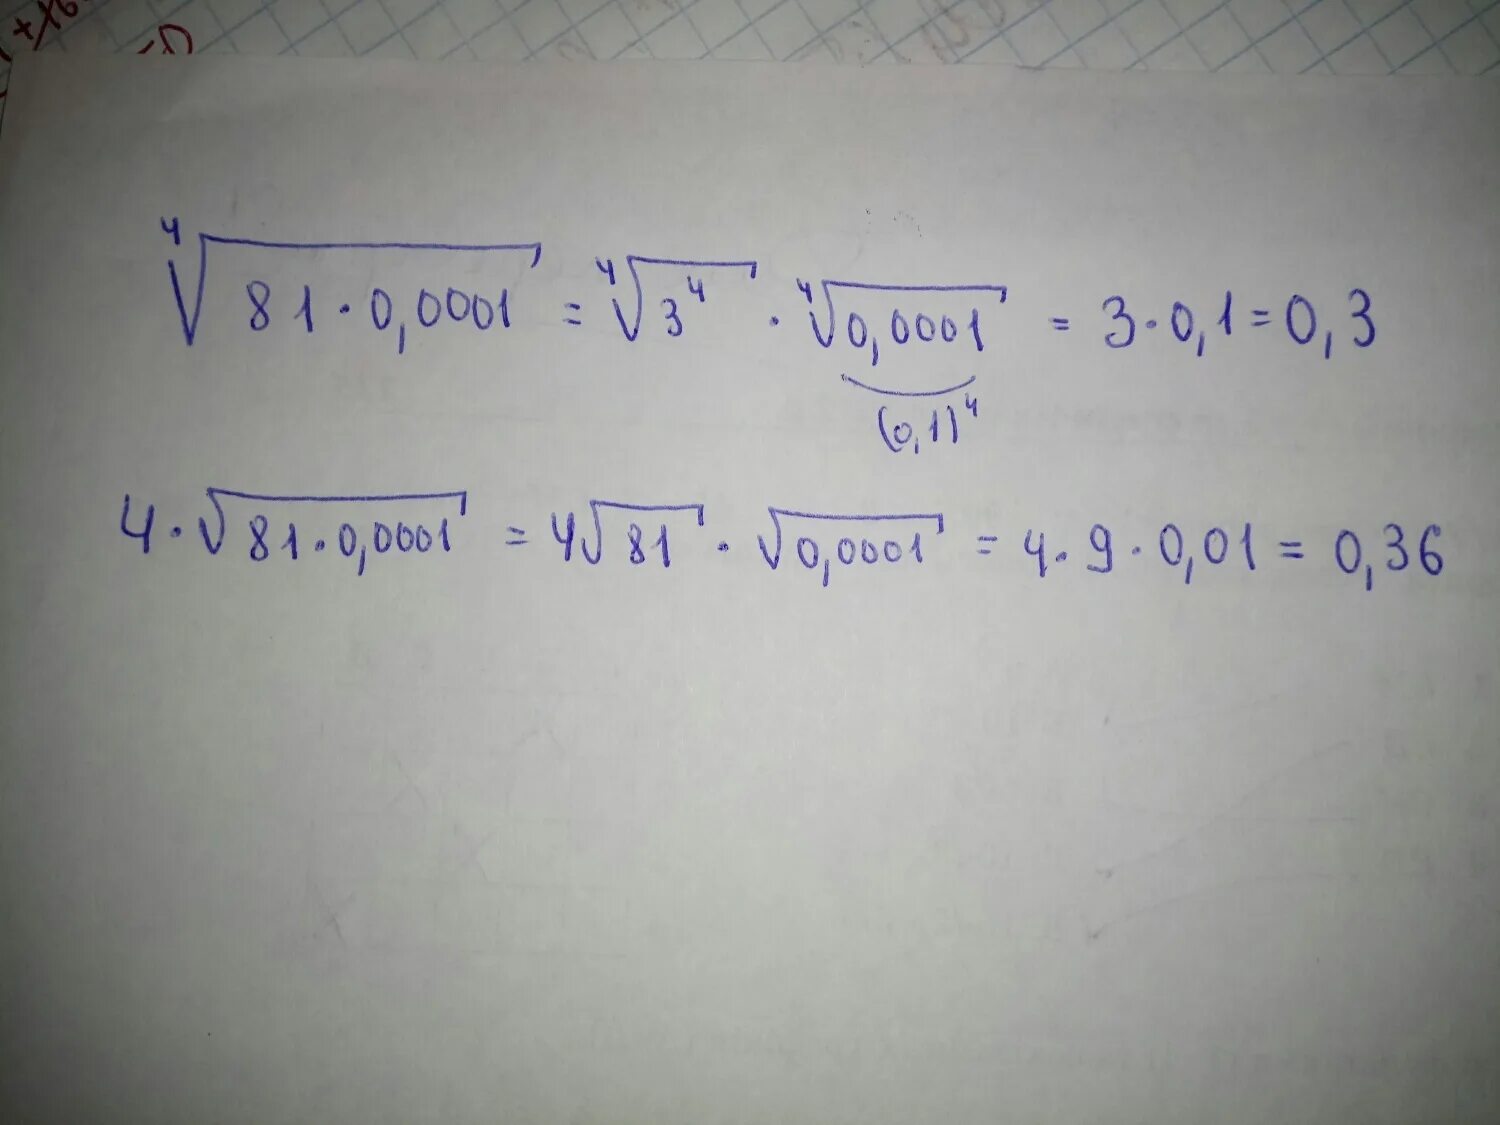 ⁴√(81·0,0001) = ⁴√(3⁴) · ⁴√(0,0001) = 3·0,1 = 0,3
(0,1)⁴
4·√(81·0,0001) = 4√81 · √(0,0001) = 4·9·0,01 = 0,36